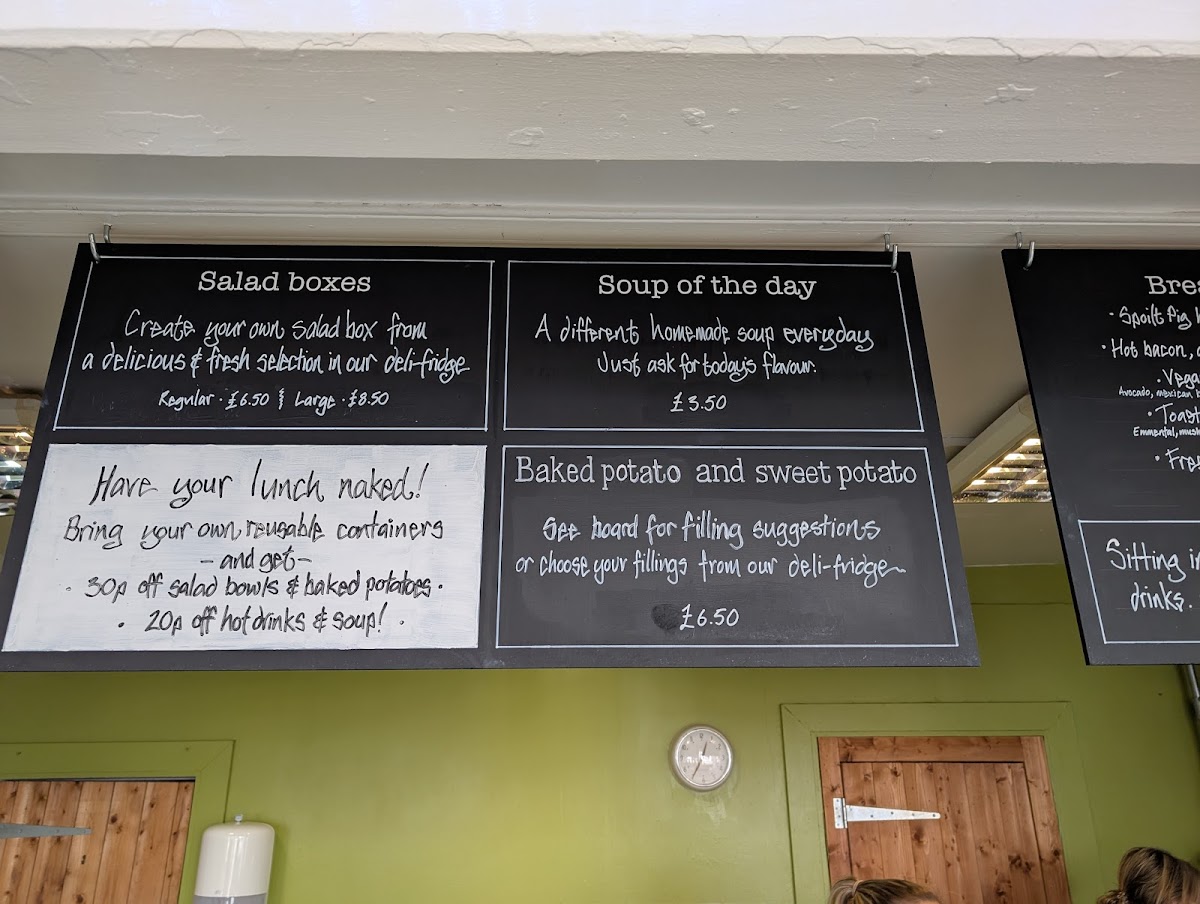 Salad boxes
Create your own salad box from
a delicious & fresh selection in our deli-fridge
Regular · £6.50 Large · £8.50
Soup of the day
A different homemade soup everyday
Just ask for todays flavour.
£3.50
Have your lunch naked!
Bring your own reusable containers
- and get -
· 30p off salad bowls & baked potatoes ·
· 20p off hot drinks & soup! ·
Baked potato and sweet potato
See board for filling suggestions
or choose your fillings from our deli-fridge
£6.50
· Spoilt fig
· Hot bacon,
Avocado, mexican
Emmental,
Sitting
drinks.